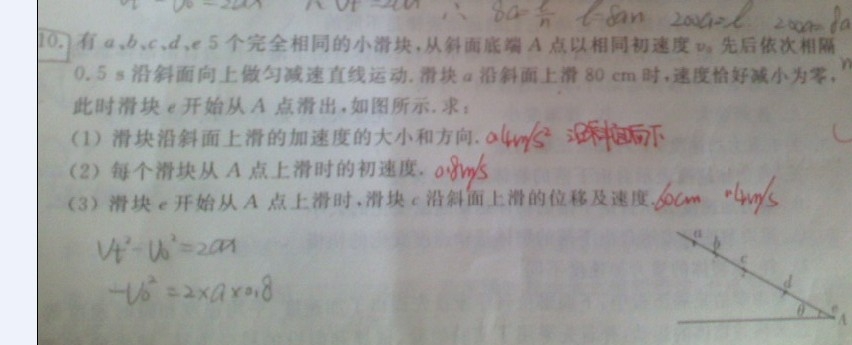 10. 有 a、b、c、d、e 5 个完全相同的小滑块,从斜面底端 A 点以相同初速度 v₀ 先后依次相隔
0.5 s 沿斜面向上做匀减速直线运动.滑块 a 沿斜面上滑 80 cm 时,速度恰好减小为零,
此时滑块 e 开始从 A 点滑出,如图所示.求:
(1) 滑块沿斜面上滑的加速度的大小和方向. 0.4m/s² 沿斜面向下
(2) 每个滑块从 A 点上滑时的初速度. 0.8m/s
(3) 滑块 e 开始从 A 点上滑时,滑块 c 沿斜面上滑的位移及速度. 60cm 0.4m/s
Vt²-V₀²=2as
-V₀²=2×a×0.8
a
b
c
d
θ
e
A